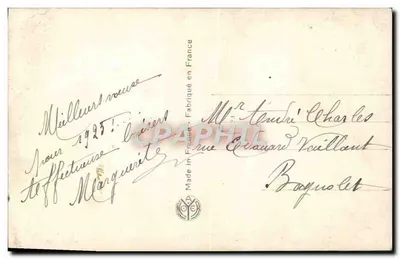 Meilleurs voeux
pour 1925!
Affectueux baisers
Marguerite
Made in France - Fabriqué en France
Mr André Charles
rue Edouard Vaillant
Bagnolet
CPAPHIL